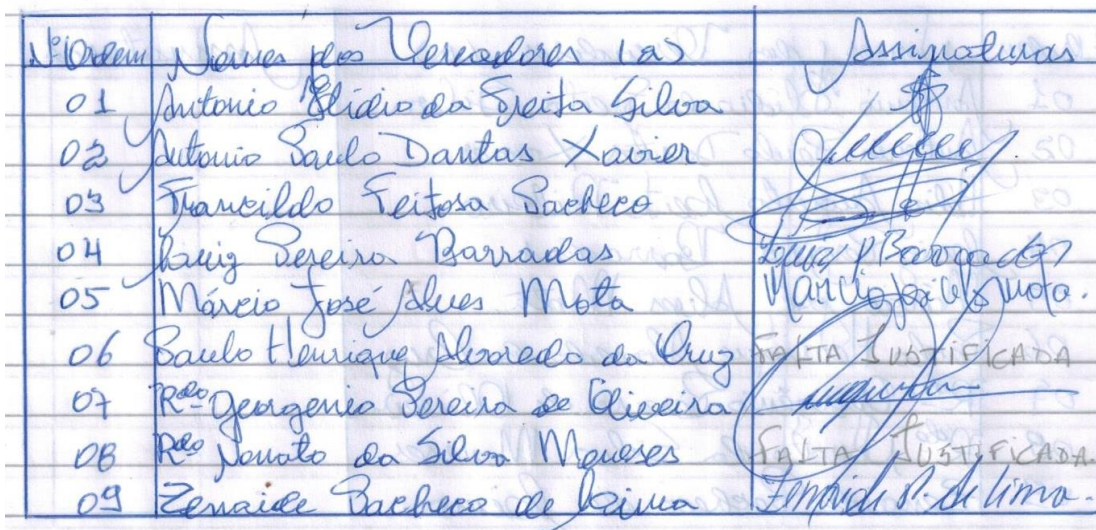 Nº Ordem Nomes dos Vereadores (as) Assinaturas
01 Antonio Elidio da Freita Silva
02 Antonio Paulo Dantas Xavier
03 Francildo Feitosa Pacheco
04 Luiz Pereira Barradas Luiz P Barradas
05 Márcio José Alves Mota Márcio José Alves Mota.
06 Paulo Henrique Alvoredo da Cruz FALTA JUSTIFICADA
07 Rdo Georgenio Pereira de Oliveira
08 Rdo Nonato da Silva Meneses FALTA JUSTIFICADA.
09 Zenaide Pacheco de Lima Zenaide P. de Lima.